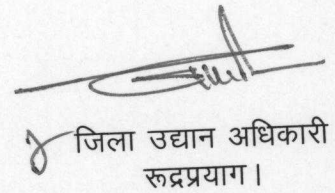 जिला उद्यान अधिकारी
रूद्रप्रयाग।